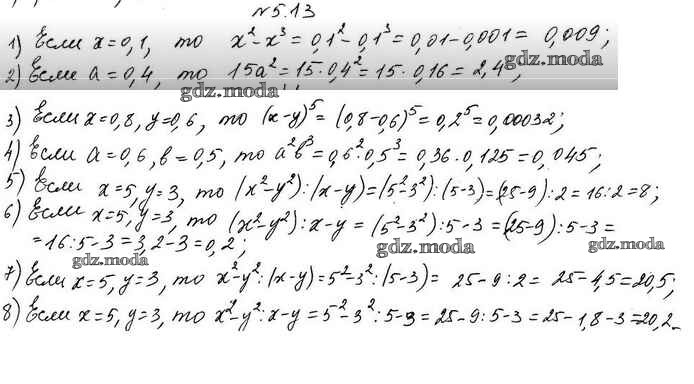 №5.13
1) Если x=0,1, то x²-x³=0,1²-0,1³=0,01-0,001= 0,009;
gdz.moda
2) Если a=0,4, то 15a²=15·0,4²=15·0,16=2,4;
gdz.moda
3) Если x=0,8, y=0,6, то (x-y)⁵=(0,8-0,6)⁵=0,2⁵=0,00032;
4) Если a=0,6, b=0,5, то a²b³=0,6²·0,5³=0,36·0,125=0,045;
5) Если x=5, y=3, то (x²-y²):(x-y)=(5²-3²):(5-3)=(25-9):2=16:2=8;
6) Если x=5, y=3, то (x²-y²):x-y=(5²-3²):5-3=(25-9):5-3=
=16:5-3=3,2-3=0,2;
gdz.moda gdz.moda gdz.moda
7) Если x=5, y=3, то x²-y²:(x-y)=5²-3²:(5-3)= 25-9:2= 25-4,5=20,5;
8) Если x=5, y=3, то x²-y²:x-y=5²-3²:5-3=25-9:5-3=25-1,8-3=20,2.